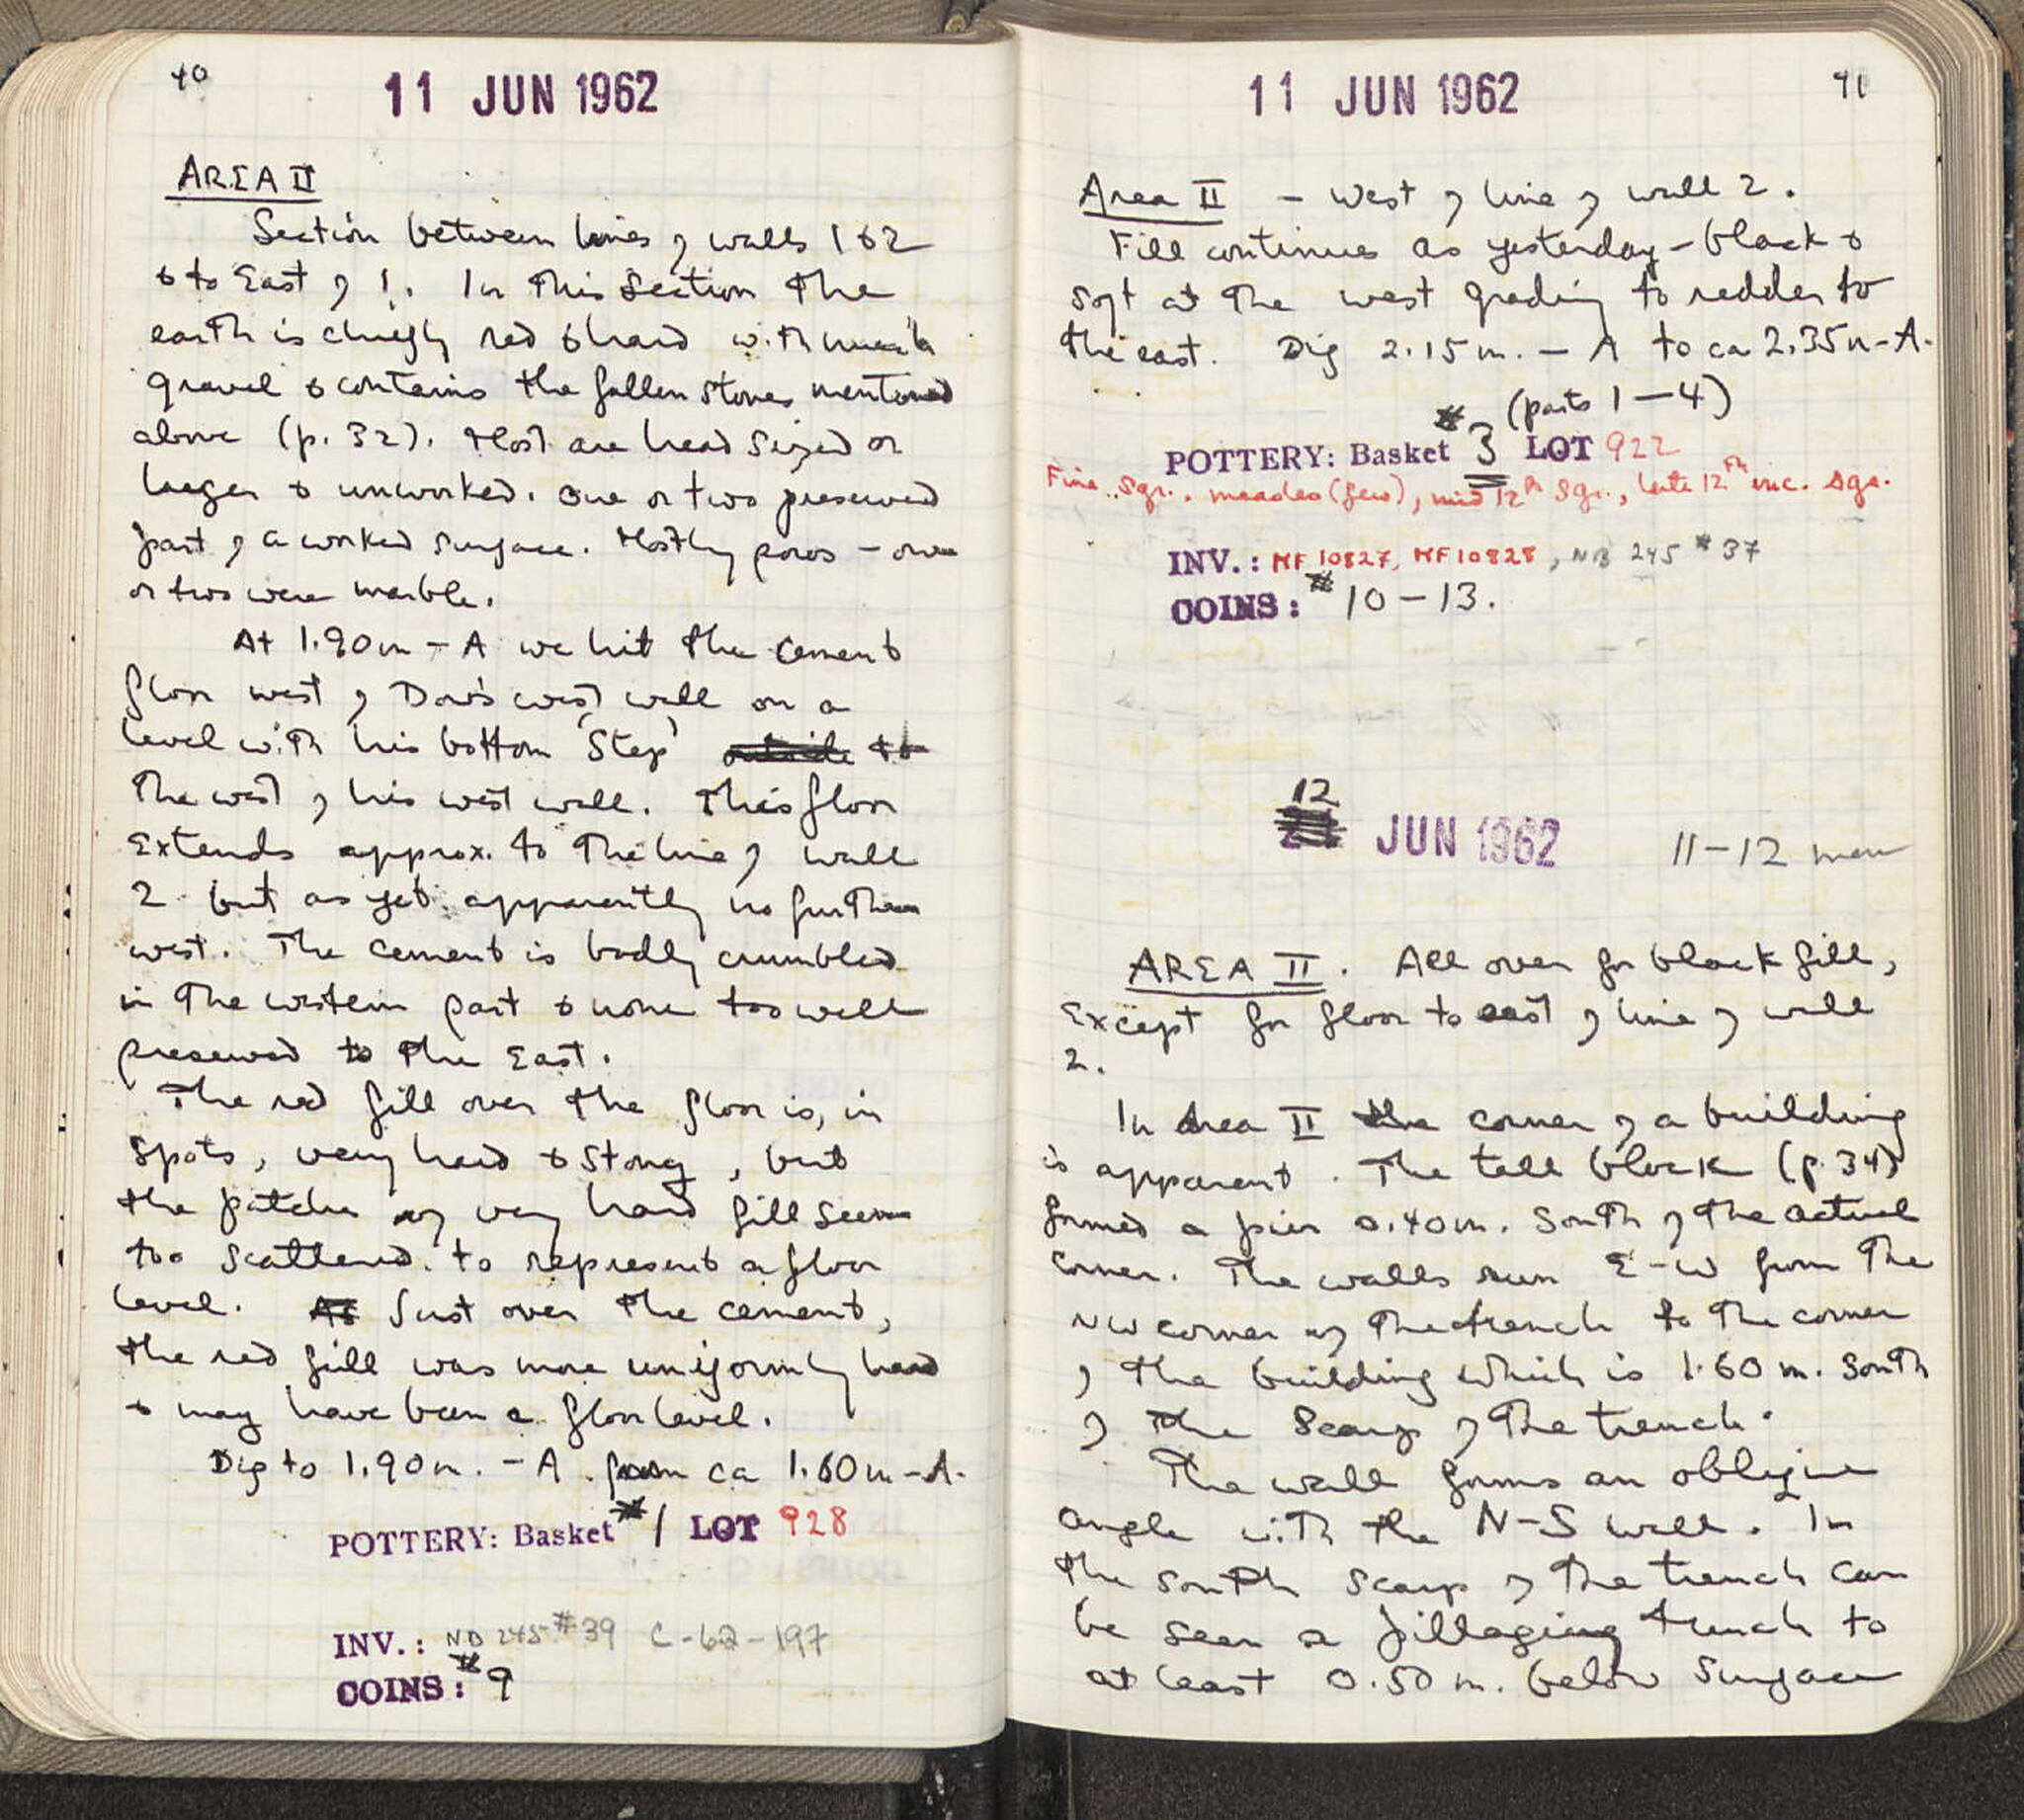 40
11 JUN 1962
AREA II
Section between lines of walls 1 & 2
& to East of 1. In this section the
earth is chiefly red & hard with much
gravel & contains the fallen stones mentioned
above (p. 32). Most are head sized or
larger & unworked. One or two preserved
part of a worked surface. Mostly poros - one
or two were marble.
At 1.90m - A we hit the cement
floor west of Dow's west wall on a
level with his bottom 'Step'
the west of his west wall. This floor
Extends approx. to the line of wall
2 but as yet apparently no further
west. The cement is badly crumbled
in the western part & none too well
preserved to the East.
The red fill over the floor is, in
spots, very hard & stony, but
the patches of very hard fill seem
too scattered to represent a floor
level. At Just over the cement,
the red fill was more uniformly hard
& may have been a floor level.
Dig to 1.90m. - A. from ca 1.60m - A.
POTTERY: Basket #1 LOT 928
INV.: NB 245 #39 C-62-197
COINS: #9
41
11 JUN 1962
Area II - West of line of wall 2.
Fill continues as yesterday - black &
soft at the west grading to redder to
the east. Dig 2.15m. - A to ca 2.35m - A.
(parts 1-4)
POTTERY: Basket #3 LOT 922
Fine Sgr., measles (few), mid 12th Sgr., late 12th inc. sgr.
INV.: MF 10827, MF 10828, NB 245 #37
COINS: #10-13.
12 JUN 1962 11-12 men
AREA II. All over for black fill,
Except for floor to east of line of wall
2.
In Area II the corner of a building
is apparent. The tall block (p. 34)
formed a pier 0.40m. South of the actual
corner. The walls run E-W from the
NW corner of the trench to the corner
of the building which is 1.60 m. South
of the Scarp of the trench.
The wall forms an oblique
angle with the N-S wall. In
the south scarp of the trench can
be seen a pillaging trench to
at least 0.50 m. below Surface